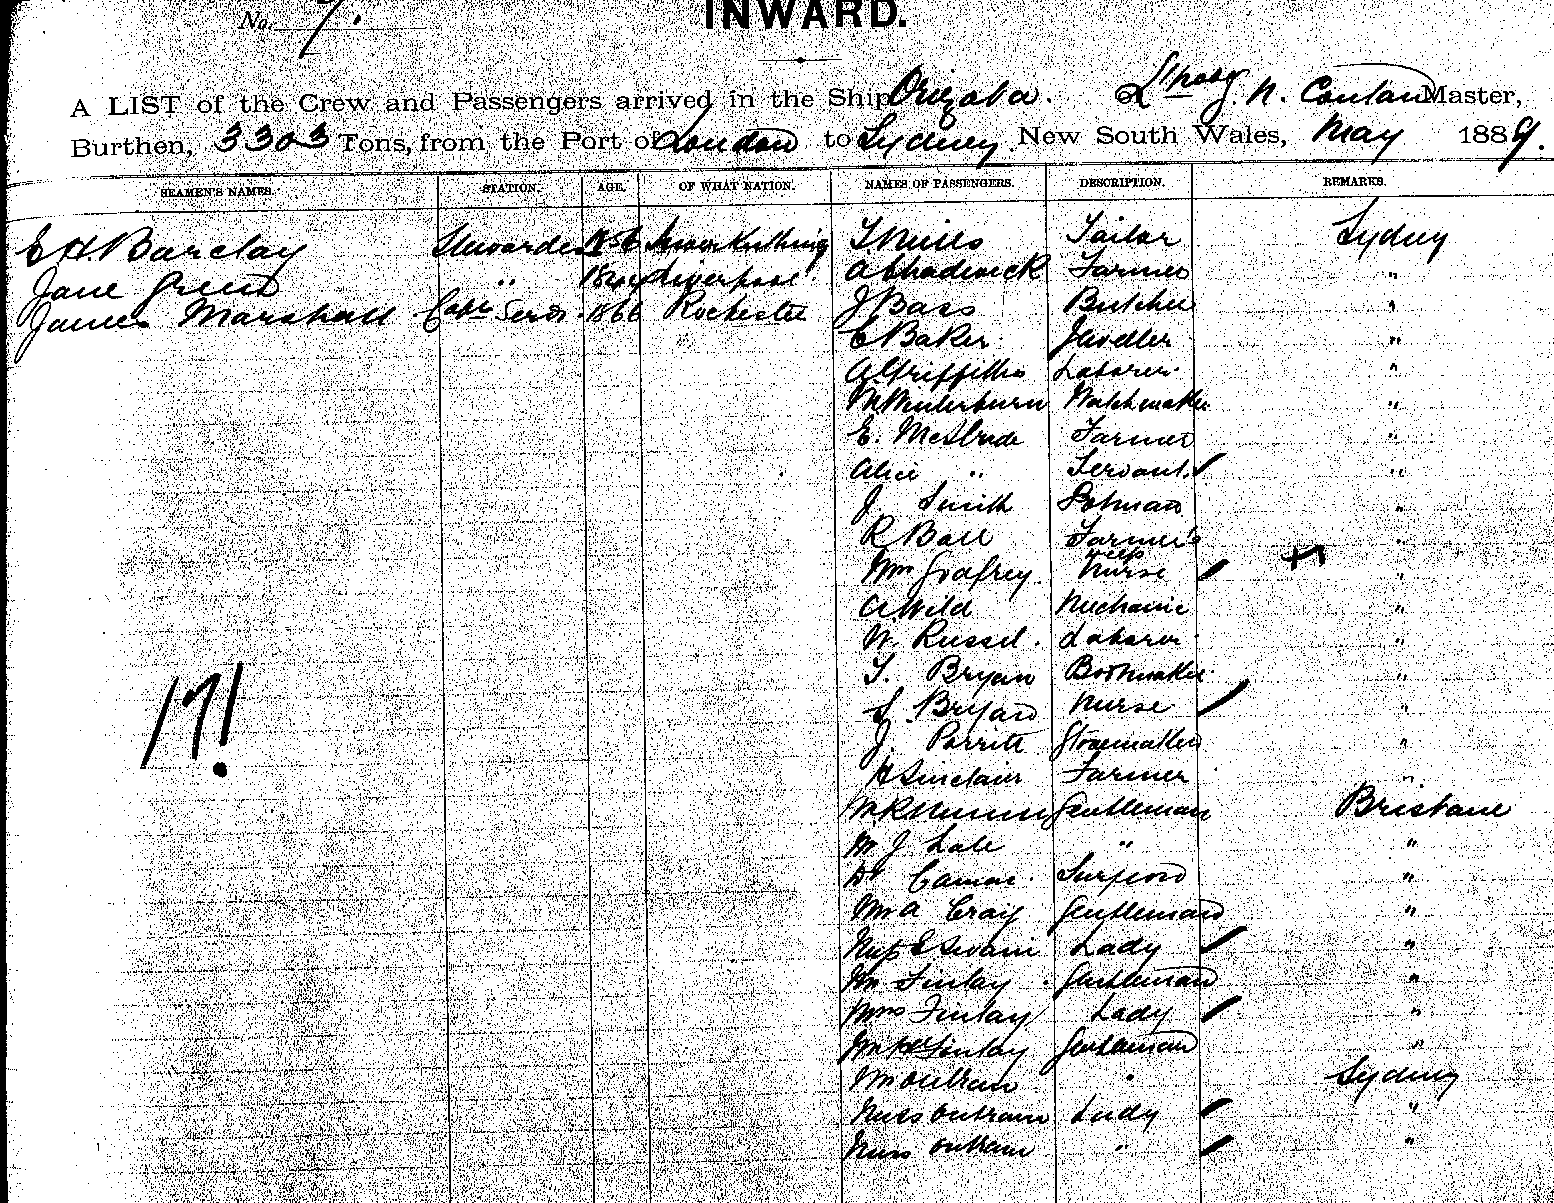 No. 9.
INWARD.
A LIST of the Crew and Passengers arrived in the Ship Orizaba. of J. N. Conlan Master,
Burthen, 3303 Tons, from the Port of London to Sydney New South Wales, May 1889.
SEAMEN'S NAMES. STATION. AGE. OF WHAT NATION. NAMES OF PASSENGERS. DESCRIPTION. REMARKS.
E H Barclay Stewardess 1856 T Mills Tailor Sydney
Jane Green " Liverpool A Chadwick Farmer "
James Marshall Capt Servt. 1866 Rochester J Bass Butcher "
E Baker Jeweller "
A Griffiths Laborer "
M Winterburn Watchmaker "
E. McBride Farmer "
Alice " Servant "
J Smith "
R Ball Farmer's "
Wm Godfrey. Nurse "
A. Wild Mechanic "
W. Russel. Laborer "
T. Bryan Bootmaker "
S. Bryan Nurse "
J. Perritt "
H Sinclair Farmer "
Gentleman Brisbane
Mr J Lale " "
Dr Surgeon "
Mr A Craig Gentleman "
Miss E Swain Lady "
Mr Finlay Gentleman "
Mrs Finlay Lady "
Mr Finlay Gentleman "
Mr Outram " Sydney
Miss Outram Lady "
Miss Outram " "